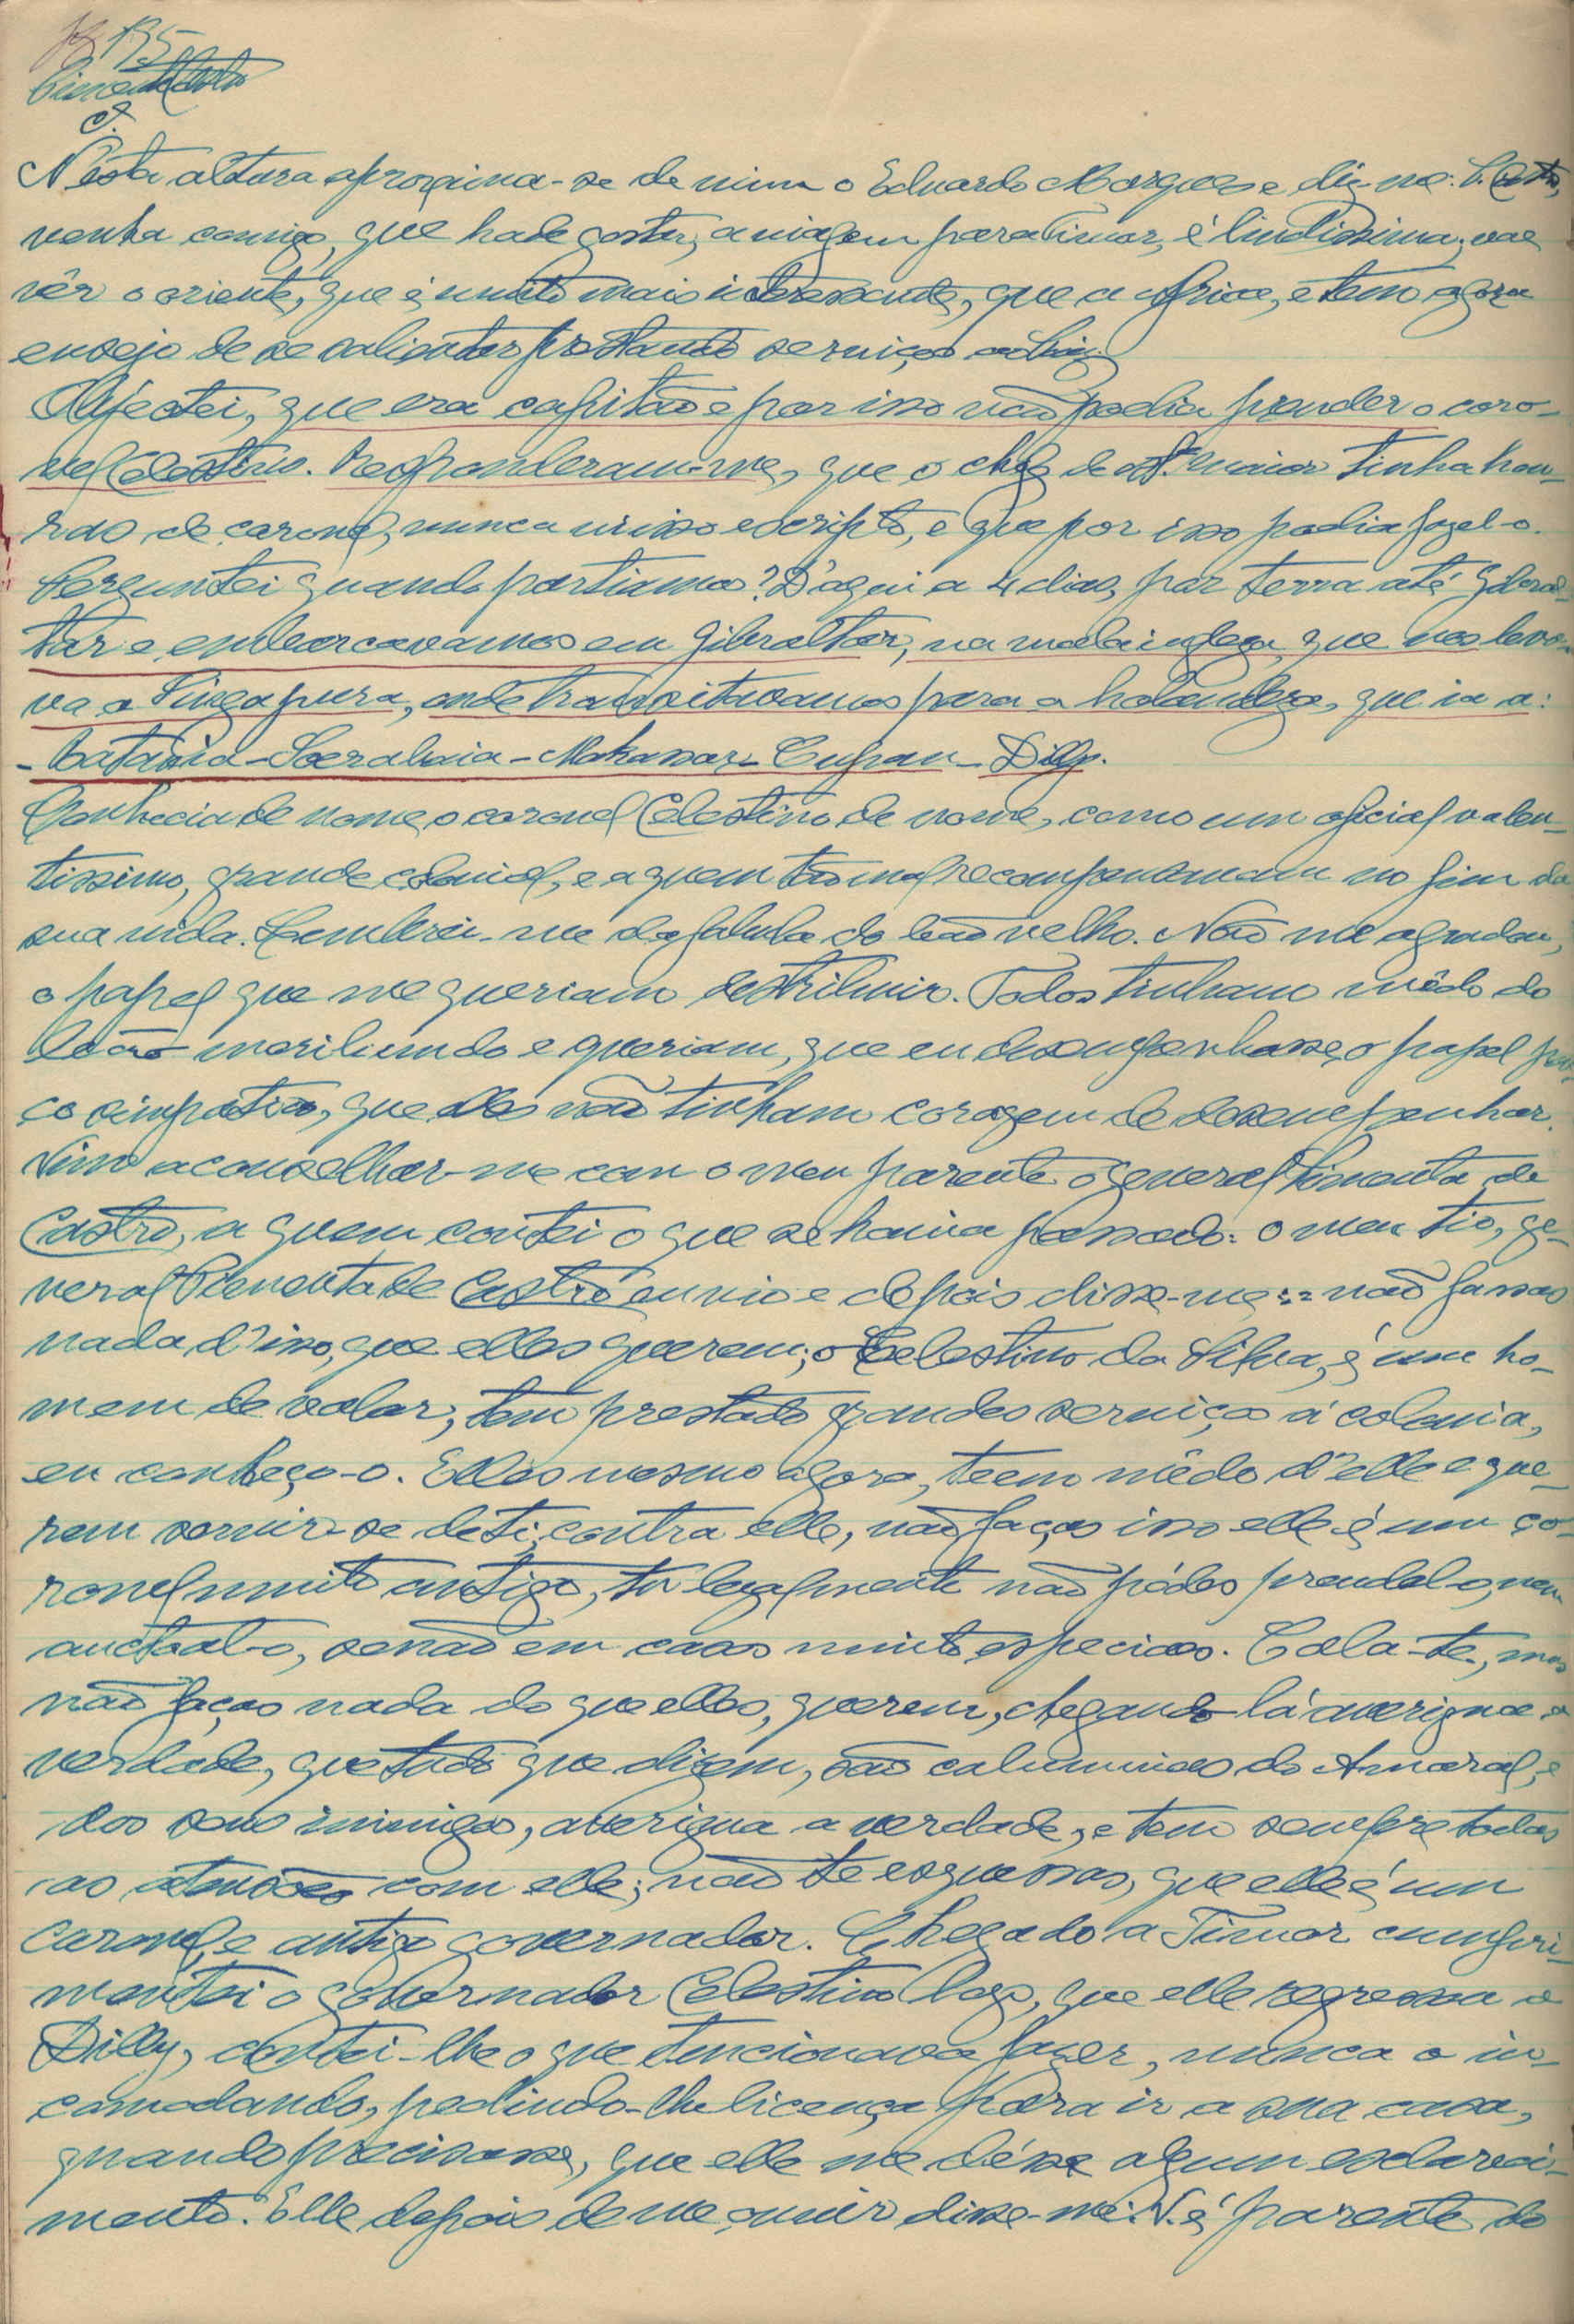 195
Pimenta Castro
Nesta altura aproxima-se de mim o Eduardo Marques e diz-me: V. Castro,
venha comigo, que hade gostar, a viagem para Timor, é lindissima, vae
vêr o oriente, que é muito mais interessante, que a Africa, e tem agora
ensejo de se salientar prestando serviços
Objectei, que era capitão e por isso não podia prender o coro-
nel Celestino. Responderam-me, que o chefe de est.º maior tinha hon-
ras de coronel, nunca vi isso escripto, e que por isso podia fazel-o.
Perguntei quando partiamos? D'aqui a 4 dias, por terra até Gibral-
tar e embarcavamos em Gibraltar, na mala ingleza, que nos leva-
va a Singapura, onde transitavamos para a holandeza, que ia a:
- Batavia - Soerabaia - Makassar - Cupan - Dilly.
Conhecia de nome o coronel Celestino de nome, como um oficial valen-
tissimo, grande colonial, e a quem tão mal recompensavam no fim da
sua vida. Lembrei-me da fabula do leão velho. Não me agradou,
o papel que me queriam destribuir. Todos tinham mêdo do
leão moribundo e queriam, que eu desempenhasse o papel pou-
co simpatico, que elles não tinham coragem de desempenhar.
Vim aconselhar-me com o meu parente o general Pimenta de
Castro, a quem contei o que se havia passado: o meu tio, ge-
neral Pimenta de Castro ouviu e depois disse-me:= não fassas
nada d'isso, que elles querem; o Celestino da Silva, é um ho-
mem de valor; tem prestado grandes serviços á colonia,
eu conheço-o. Elles mesmo agora, teem mêdo d'elle e que-
rem servir-se de ti, contra elle, não faças isso elle é um co-
ronel muito antigo, tu legalmente não pódes prendel-o, nem
auctoal-o, senão em casos muito especiaes. Cala-te, mas
não faças nada do que elles, querem, chegando lá averigua a
verdade, que tudo que dizem, são calumnias do Amaral, e
dos seus inimigos, averigua a verdade, e tem sempre todas
as atensões com elle; não te esquessas, que elle é um
coronel, e antigo governador. Chegado a Timor cumpri-
mentei o governador Celestino logo, que elle regressa a
Dilly, contei-lhe o que tencionava fazer, nunca o in-
comodando, pedindo-lhe licença para ir a sua casa,
quando precisasse, que elle me désse algum esclareci-
mento. Elle depois de me ouvir disse-me: V. é parente do